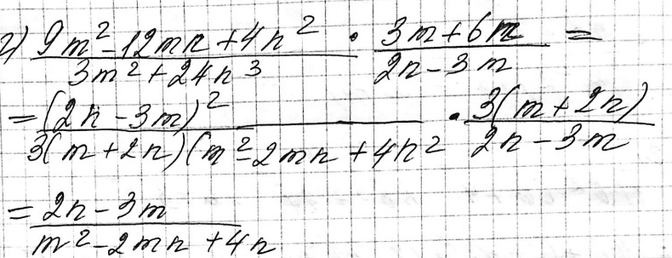 2) (9m² - 12mn + 4n²)/(3m² + 24n³) · (3m + 6n)/(2n - 3m) =
= (2n - 3m)²/(3(m + 2n)(m² - 2mn + 4n²) · 3(m + 2n)/(2n - 3m)
= (2n - 3m)/(m² - 2mn + 4n)